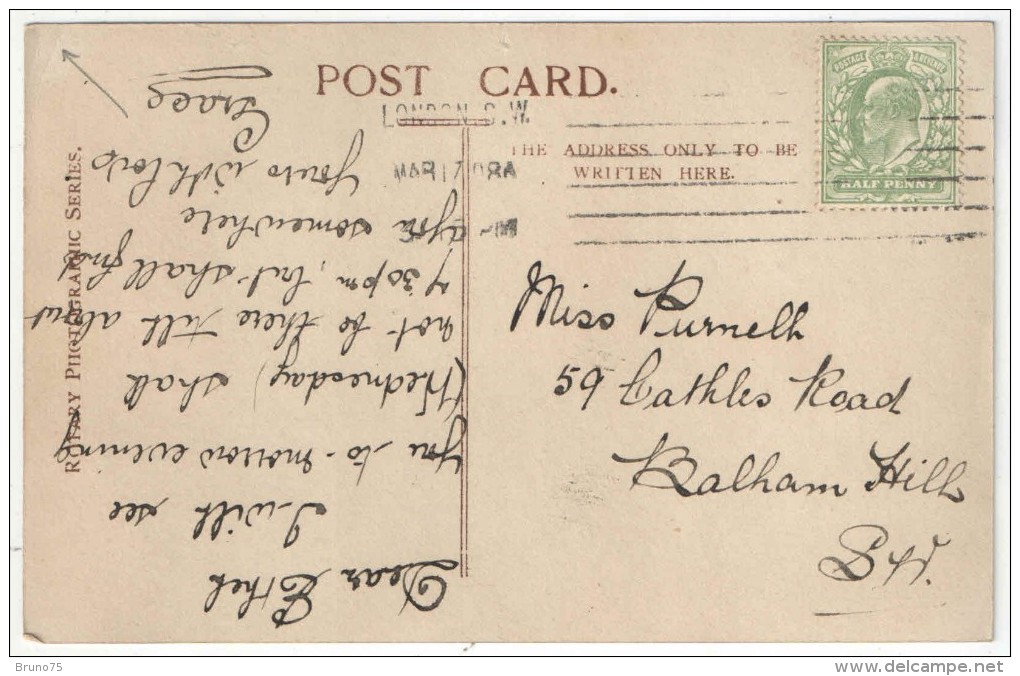 POST CARD.
LONDON. S.W.
MAR 17 08
THE ADDRESS ONLY TO BE
WRITTEN HERE.
POSTAGE & REVENUE
HALF PENNY
ROTARY PHOTOGRAPHIC SERIES.
Miss Purnell
59 Cathles Road
Balham Hill
S.W.
Dear Ethel
I will see
you to-morrow evening
(Wednesday) shall
not be there till about
7 30 pm, but shall find
you somewhere
Yours with love
Grace
Bruno75
www.delcampe.net